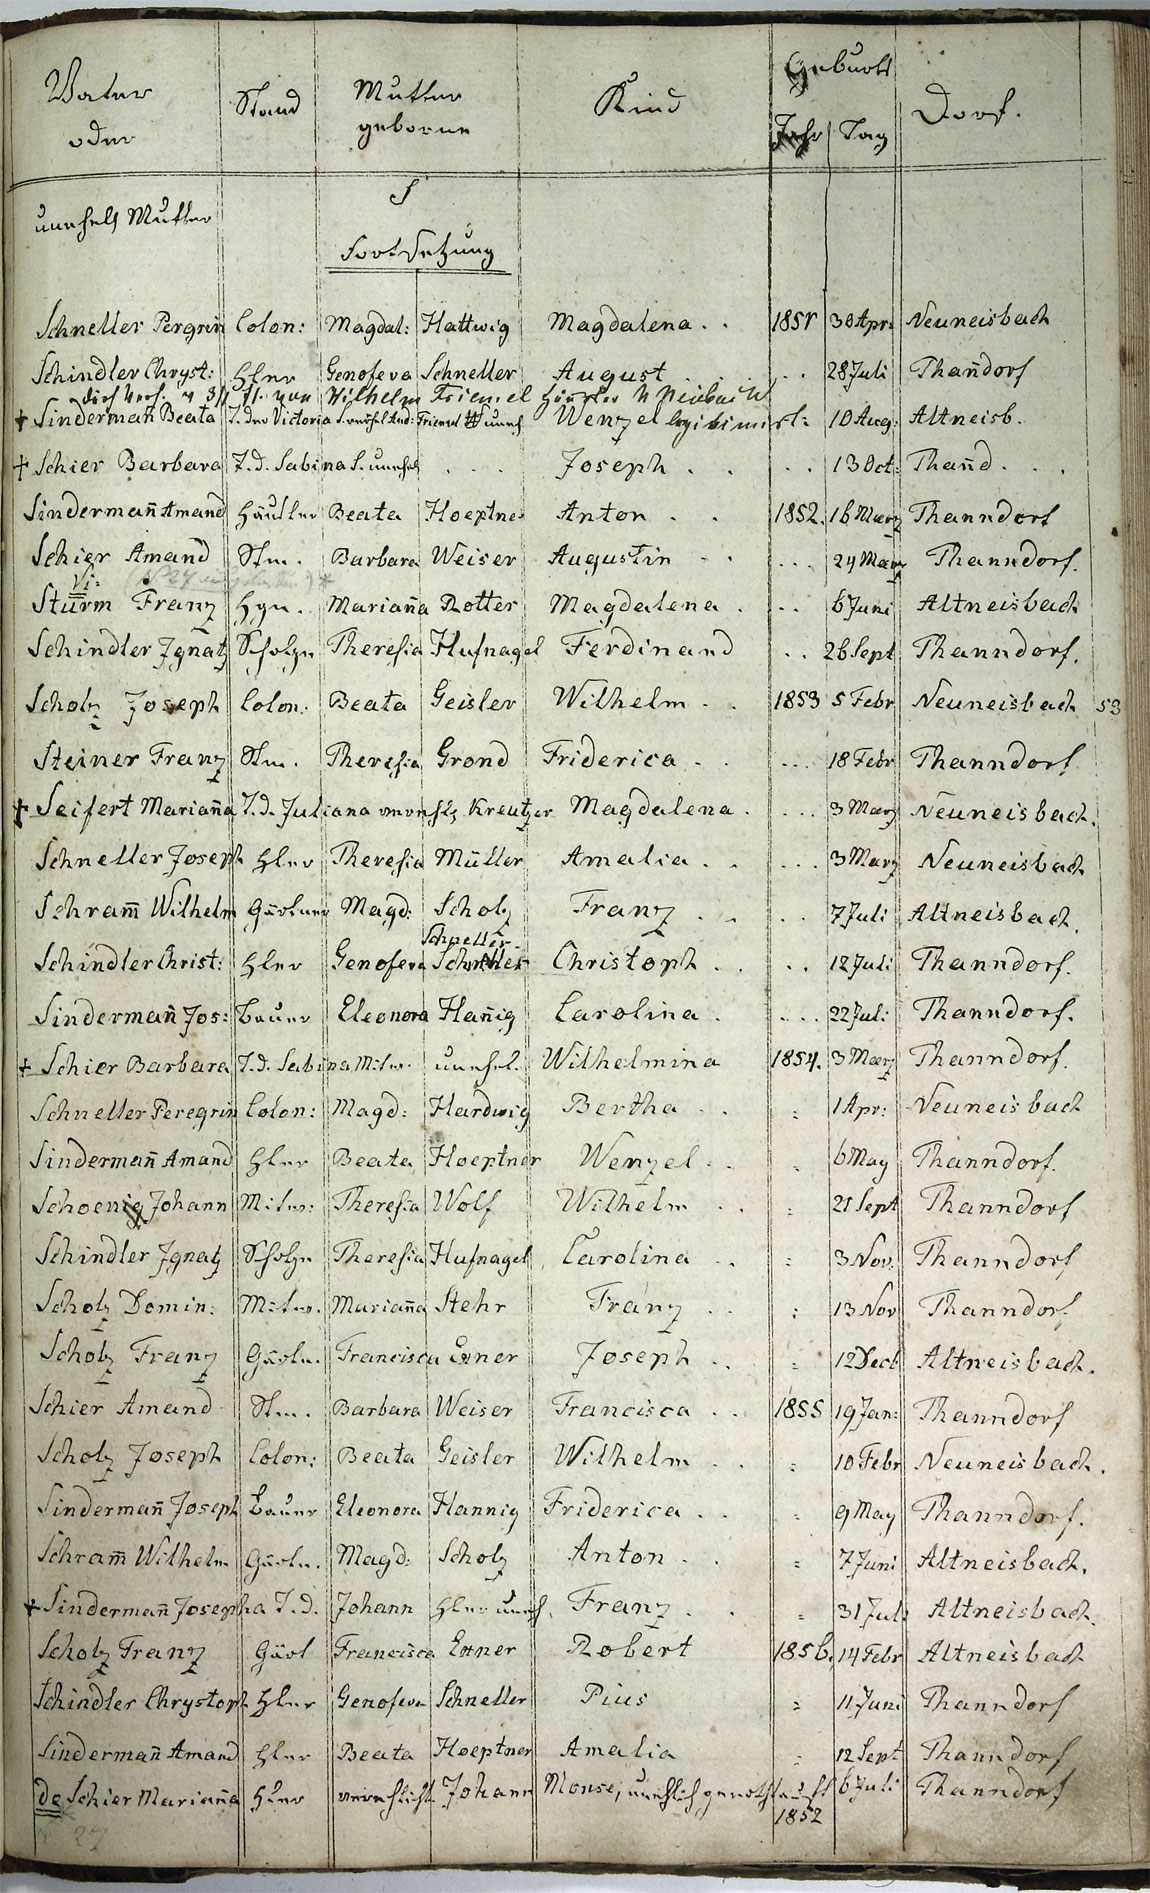 Vater Stand Mutter Kind Geburts Dorf.
oder geborne Jahr Tag
unehel. Mutter S
Fortsetzung
Schneller Pergrin Colon: Magdal: Hattwig Magdalena . . 1851 30 Apr: Neuneisbach
Schindler Chryst: Hler Genofeva Schneller August . . . 28 Juli Than̄dorf
Wilhelm Friemel
† Sinderman̄ Beata T. der Victoria Wenzel legitimirt: 10 Aug: Altneisb.
† Schier Barbara T. d. Sabina S. unehel . . . Joseph . . . . 13 Oct: Than̄d. . . .
Sinderman̄ Amand Häusler Beata Hoeptner Anton . . 1852. 16 Maerz Thanndorf
Schier Amand Stm. Barbara Weiser Augustin . . . . . 24 Maerz Thanndorf.
Sturm Franz Hgn. Marian̄a Rotter Magdalena . . . 6 Juni Altneisbach
Schindler Ignatz Scholze Theresia Hufnagel Ferdinand . . 26 Sept Thanndorf.
Scholz Joseph Colon: Beata Geisler Wilhelm . . 1853 5 Febr Neuneisbach 53
Steiner Franz Stm. Theresia Grond Friderica . . . . . 18 Febr Thanndorf
† Seifert Marian̄a T. d. Juliana verehl. Kreutzer Magdalena . . . . 3 Maerz Neuneisbach.
Schneller Joseph Hler Theresia Müller Amalia . . . . . 3 Marz Neuneisbach
Schram̄ Wilhelm Gärtner Magd: Scholz Franz . . . . 7 Juli Altneisbach.
Schneller
Schindler Christ: Hler Genofeva Christoph . . . . 12 Juli Thanndorf.
Sinderman̄ Jos: Bauer Eleonora Han̄ig Carolina . . . . 22 Juli Thanndorf.
† Schier Barbara T. d. Sabina Mitw. unehel. Wilhelmina 1854. 3 Maerz Thanndorf.
Schneller Peregrin Colon: Magd: Hardwig Bertha . . : 1 Apr: Neuneisbach
Sinderman̄ Amand Hler Beata Hoeptner Wenzel . . : 6 May Thanndorf.
Schoenig Johann Mitw: Theresia Wolf Wilhelm . . : 21 Sept Thanndorf
Schindler Ignatz Scholze Theresia Hufnagel Carolina . . : 3 Nov. Thanndorf
Scholz Domin: Mitw. Marian̄a Stehr Franz . . : 13 Nov Thanndorf.
Scholz Franz Gärtn. Francisca Exner Joseph . . : 12 Decb Altneisbach.
Schier Amand Stm. Barbara Weiser Francisca . . 1855 19 Jan: Thanndorf
Scholz Joseph Colon: Beata Geisler Wilhelm . . : 10 Febr Neuneisbach.
Sinderman̄ Joseph Bauer Eleonora Hannig Friderica . . : 9 May Thanndorf.
Schram̄ Wilhelm Gärtn. Magd: Scholz Anton . . : 7 Juni Altneisbach.
† Sinderman̄ Josepha T. d. Johann Hler uneh. Franz . . : 31 Juli Altneisbach.
Scholz Franz Gärt Francisca Exner Robert 1856. 14 Febr Altneisbach
Schindler Chrystoph Hler Genofeva Schneller Pius : 11 Juni Thanndorf
Sinderman̄ Amand Hler Beata Hoeptner Amalia : 12 Sept Thanndorf
de Schier Marian̄a Hler verehlicht Johann Monse, unehlich 6 Juli Thanndorf
1852
27